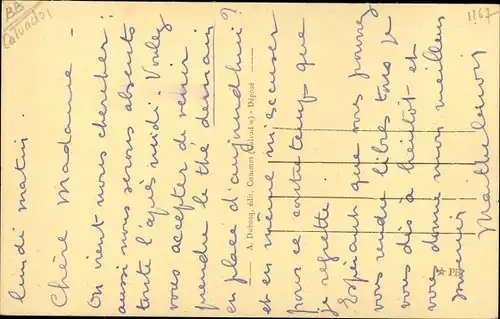 lundi matin.
Chère Madame -
On vient nous chercher :
aussi nous serons absents
toute l'après midi. Voulez
vous accepter de venir
prendre le thé demain
en place d'aujourdhui?
et en même m'excuser
pour ce contre temps que
je regrette.
Espérant que vous pourrez
vous rendre libres tous je
vous dis à bientôt et
vous donne mon meilleur
souvenir
A. Dubosq, édit., Commes (Calvados) - Déposé
PB
Calvados
1167